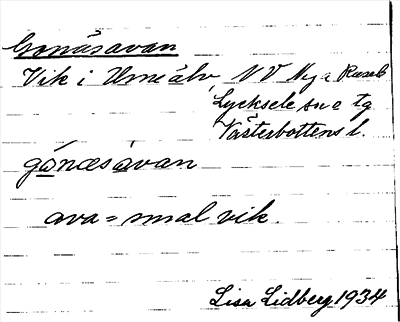 Gonäsavan
Vik i Umeälv, NV Nya Ruseb
Lycksele sn o tg
Västerbottens l.
gånæsavan
ava = smal vik.
Lisa Lidberg 1934